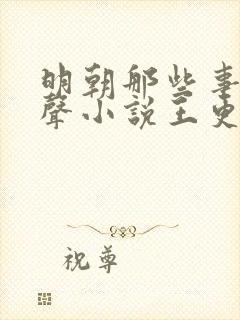 明朝那些事
聲小說王更
祝尊